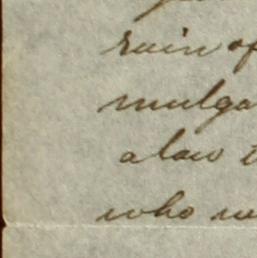 ruin of
mulga
a law t
who we